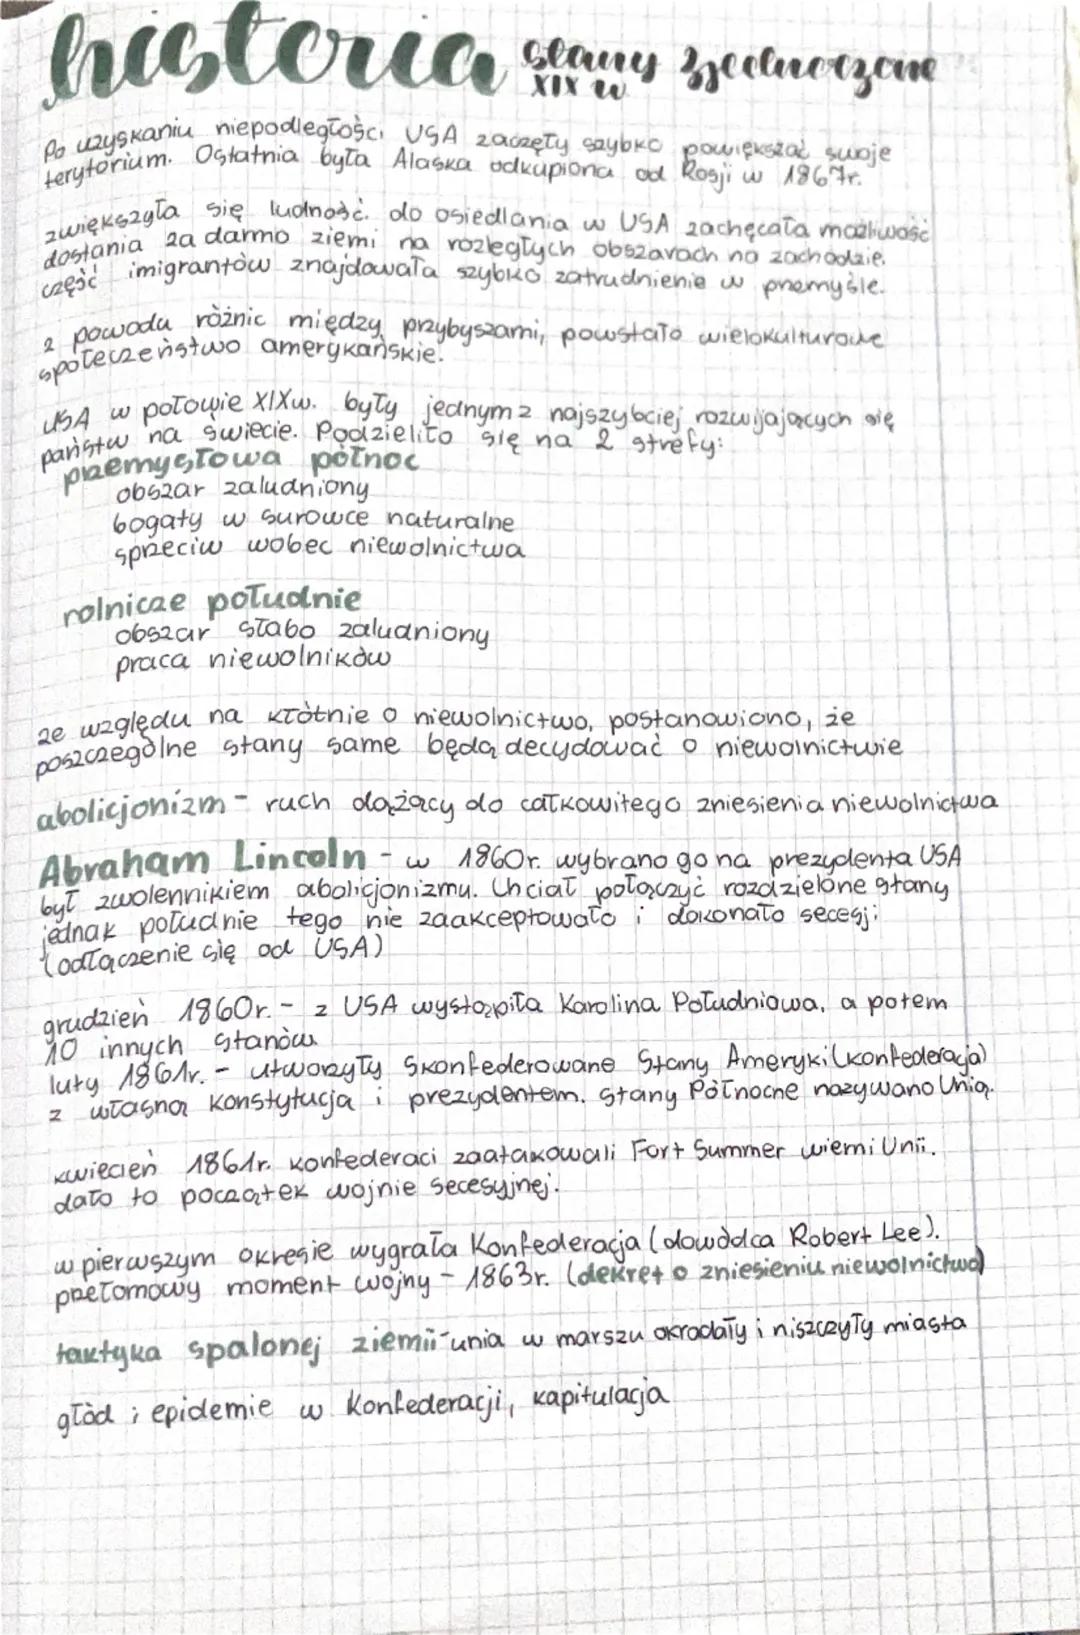 historia stany zjednoczone
XIX w
Po uzyskaniu niepodległości USA zaczęły szybko powiększać swoje
terytorium. Ostatnia była Alaska odkupiona od Rosji w 1867r.
zwiększyła się ludność. do osiedlania w USA zachęcała możliwość
dostania za darmo ziemi na rozległych obszarach na zachodzie.
część imigrantów znajdowała szybko zatrudnienie w przemyśle.
z powodu różnic między przybyszami, powstało wielokulturowe
społeczeństwo amerykańskie.
USA w połowie XIXw. były jednym z najszybciej rozwijających się
państw na świecie. Podzieliło się na 2 strefy:
przemysłowa północ
obszar zaludniony
bogaty w surowce naturalne
sprzeciw wobec niewolnictwa
rolnicze południe
obszar słabo zaludniony
praca niewolników
ze względu na kłótnie o niewolnictwo, postanowiono, że
poszczególne stany same będą decydować o niewolnictwie
abolicjonizm - ruch dążący do całkowitego zniesienia niewolnictwa
Abraham Lincoln - w 1860r. wybrano go na prezydenta USA
był zwolennikiem abolicjonizmu. Chciał połączyć rozdzielone stany
jednak południe tego nie zaakceptowało i dokonało secesji
(odłączenie się od USA)
grudzień 1860r. - z USA wystąpiła Karolina Południowa, a potem
10 innych stanów
luty 1861r. - utworzyły Skonfederowane Stany Ameryki (konfederacja)
z własną konstytucją i prezydentem. Stany Północne nazywano Unią.
kwiecień 1861r. konfederaci zaatakowali Fort Summer wierni Unii.
dało to początek wojnie secesyjnej.
w pierwszym okresie wygrała Konfederacja (dowódca Robert Lee).
przełomowy moment wojny - 1863r. (dekret o zniesieniu niewolnictwa)
taktyka spalonej ziemii - unia w marszu okradały i niszczyły miasta
głód i epidemie w Konfederacji, kapitulacja